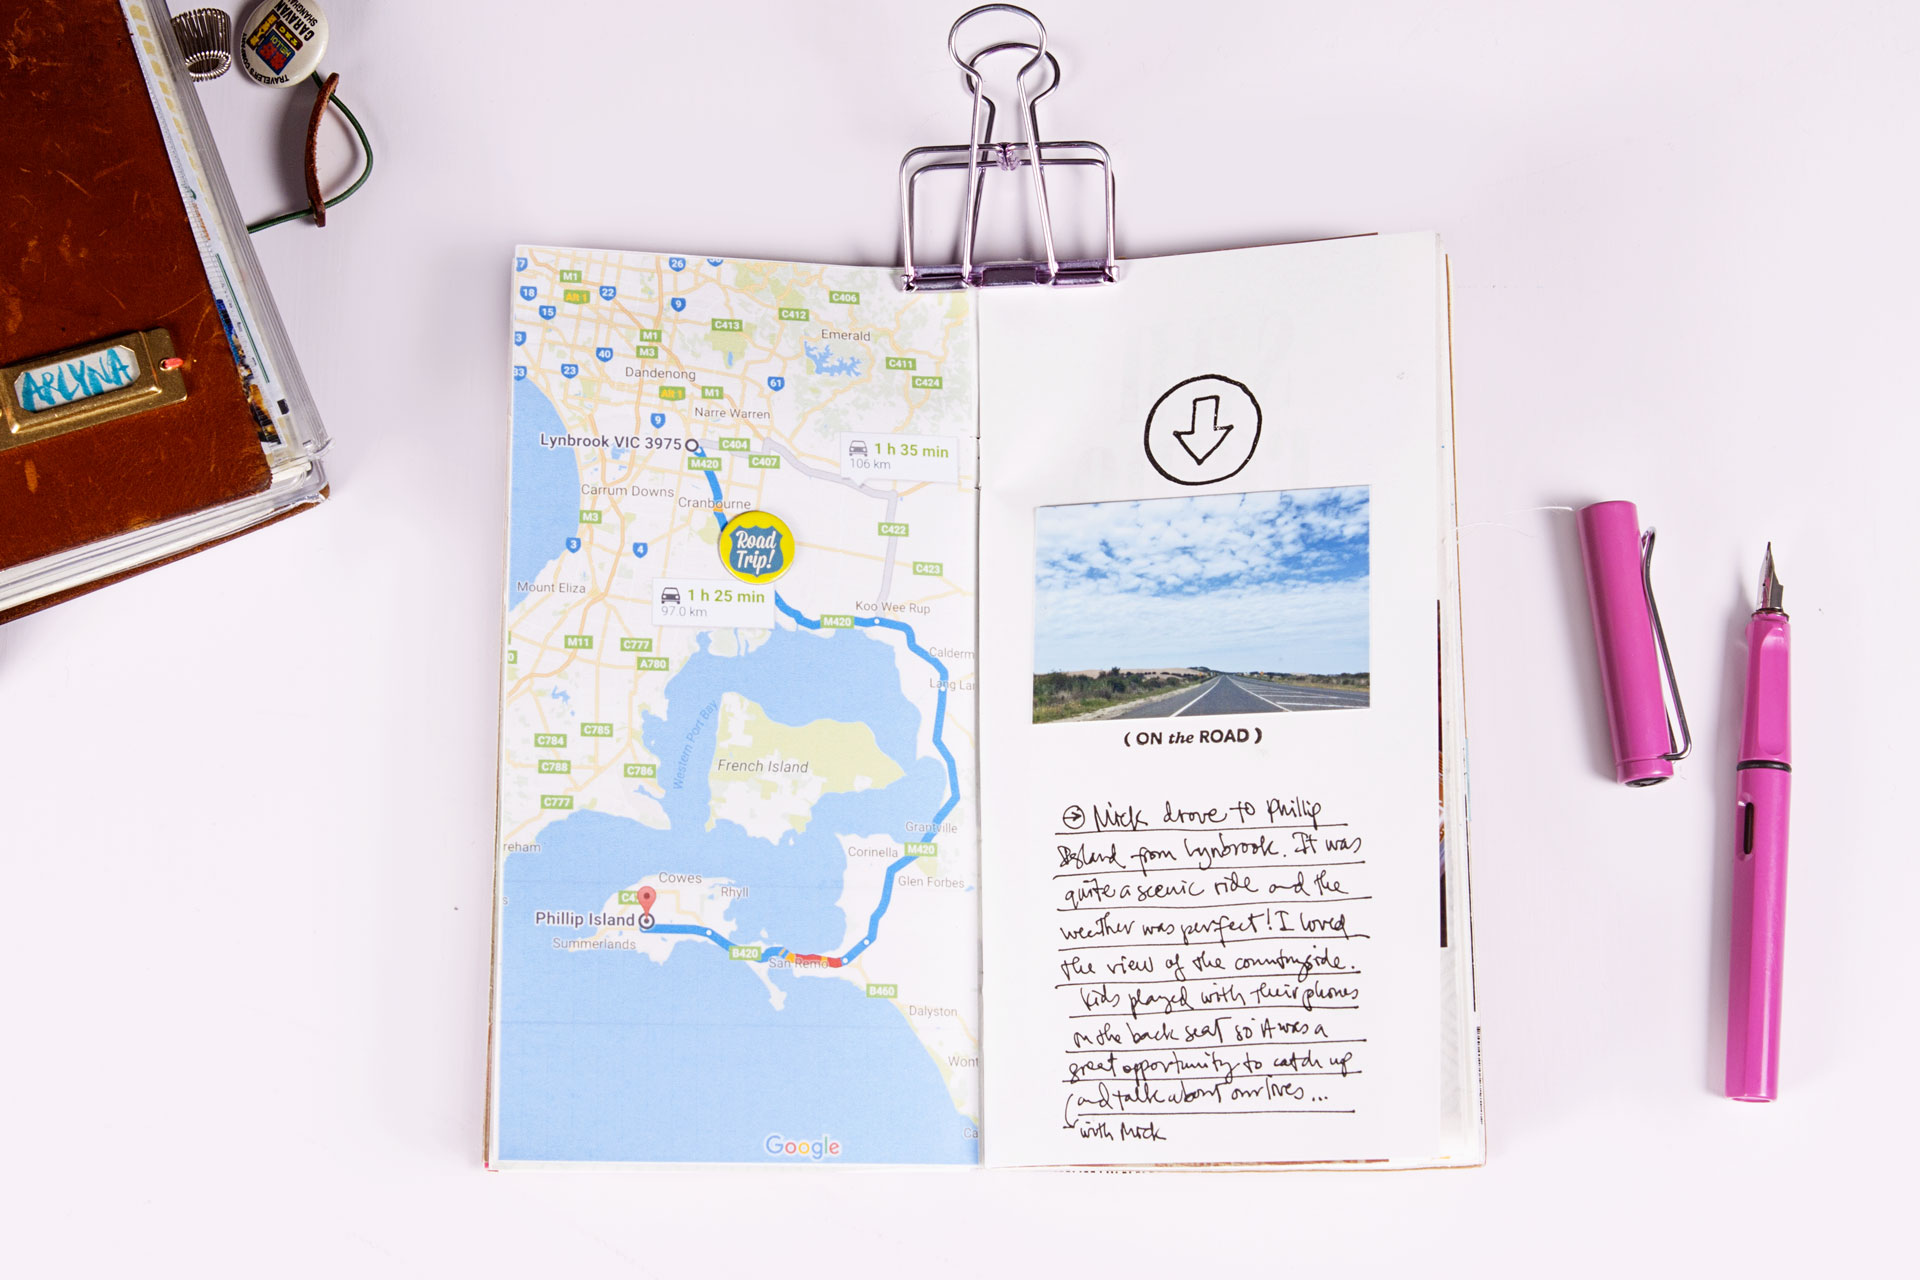 CARAVAN
SHANGHAI
HELLO!
TRAVELER'S
ARLYNA
26
M1
AR 1
22
18
15
9
C406
C412
C413
M1
M3
Emerald
40
C411
23
Dandenong
61
C424
AR 1
M1
9
Narre Warren
Lynbrook VIC 3975
C404
1 h 35 min
106 km
M420
C407
Carrum Downs
Cranbourne
M3
C422
3
4
Road
Trip!
C423
Mount Eliza
1 h 25 min
97.0 km
Koo Wee Rup
M420
M11
C777
A780
Calderm
Lang Lan
Western Port Bay
C785
C784
C788
C786
French Island
C777
Grantville
reham
Corinella
M420
Cowes
Rhyll
Glen Forbes
Phillip Island
Summerlands
B420
San Remo
B460
Dalyston
Wont
Google
( ON the ROAD )
Mick drove to Phillip
Island from Lynbrook. It was
quite a scenic ride and the
weather was perfect! I loved
the view of the countryside.
Kids played with their phones
on the back seat so it was a
great opportunity to catch up
and talk about our lives...
with Mick